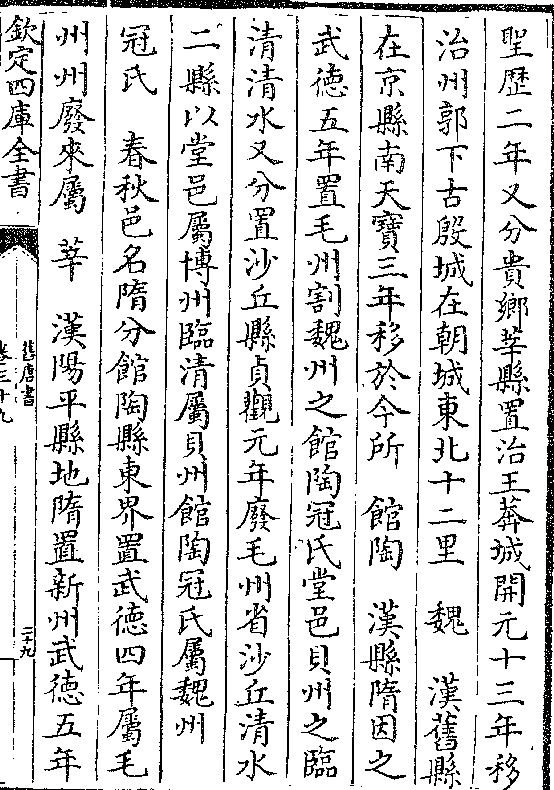 聖歷二年又分貴鄉莘縣置治王莽城開元十三年移
治州郭下古殷城在朝城東北十二里　魏　漢舊縣
在京縣南天寶三年移於今所　館陶　漢縣隋因之
武德五年置毛州割魏州之館陶冠氏堂邑貝州之臨
清清水又分置沙丘縣貞觀元年廢毛州省沙丘清水
二縣以堂邑屬博州臨清屬貝州館陶冠氏屬魏州
冠氏　春秋邑名隋分館陶縣東界置武德四年屬毛
州州廢來屬　莘　漢陽平縣地隋置新州武德五年
欽定四庫全書
舊唐書
卷三十九
二十九